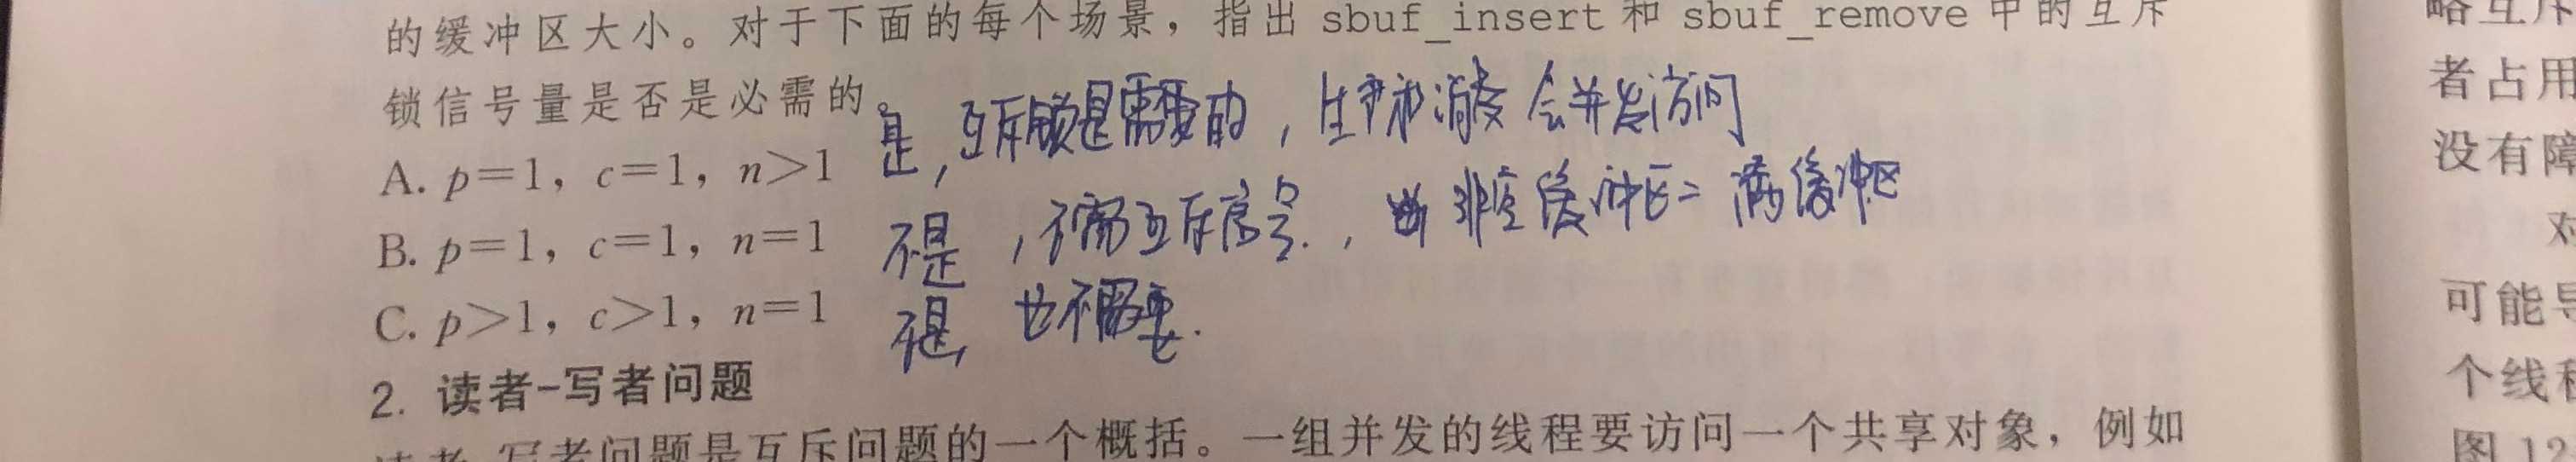 的缓冲区大小。对于下面的每个场景，指出 sbuf_insert 和 sbuf_remove 中的互斥
锁信号量是否是必需的。
是，互斥锁是需要的，生产和消费会并发访问
A. p=1, c=1, n>1
不是，不需互斥信号，当非空缓冲区=满缓冲区
B. p=1, c=1, n=1
不是，也不需要.
C. p>1, c>1, n=1
2. 读者-写者问题
读者-写者问题是互斥问题的一个概括。一组并发的线程要访问一个共享对象，例如
略互斥
者占用
没有障
对
可能导
个线程
图 12